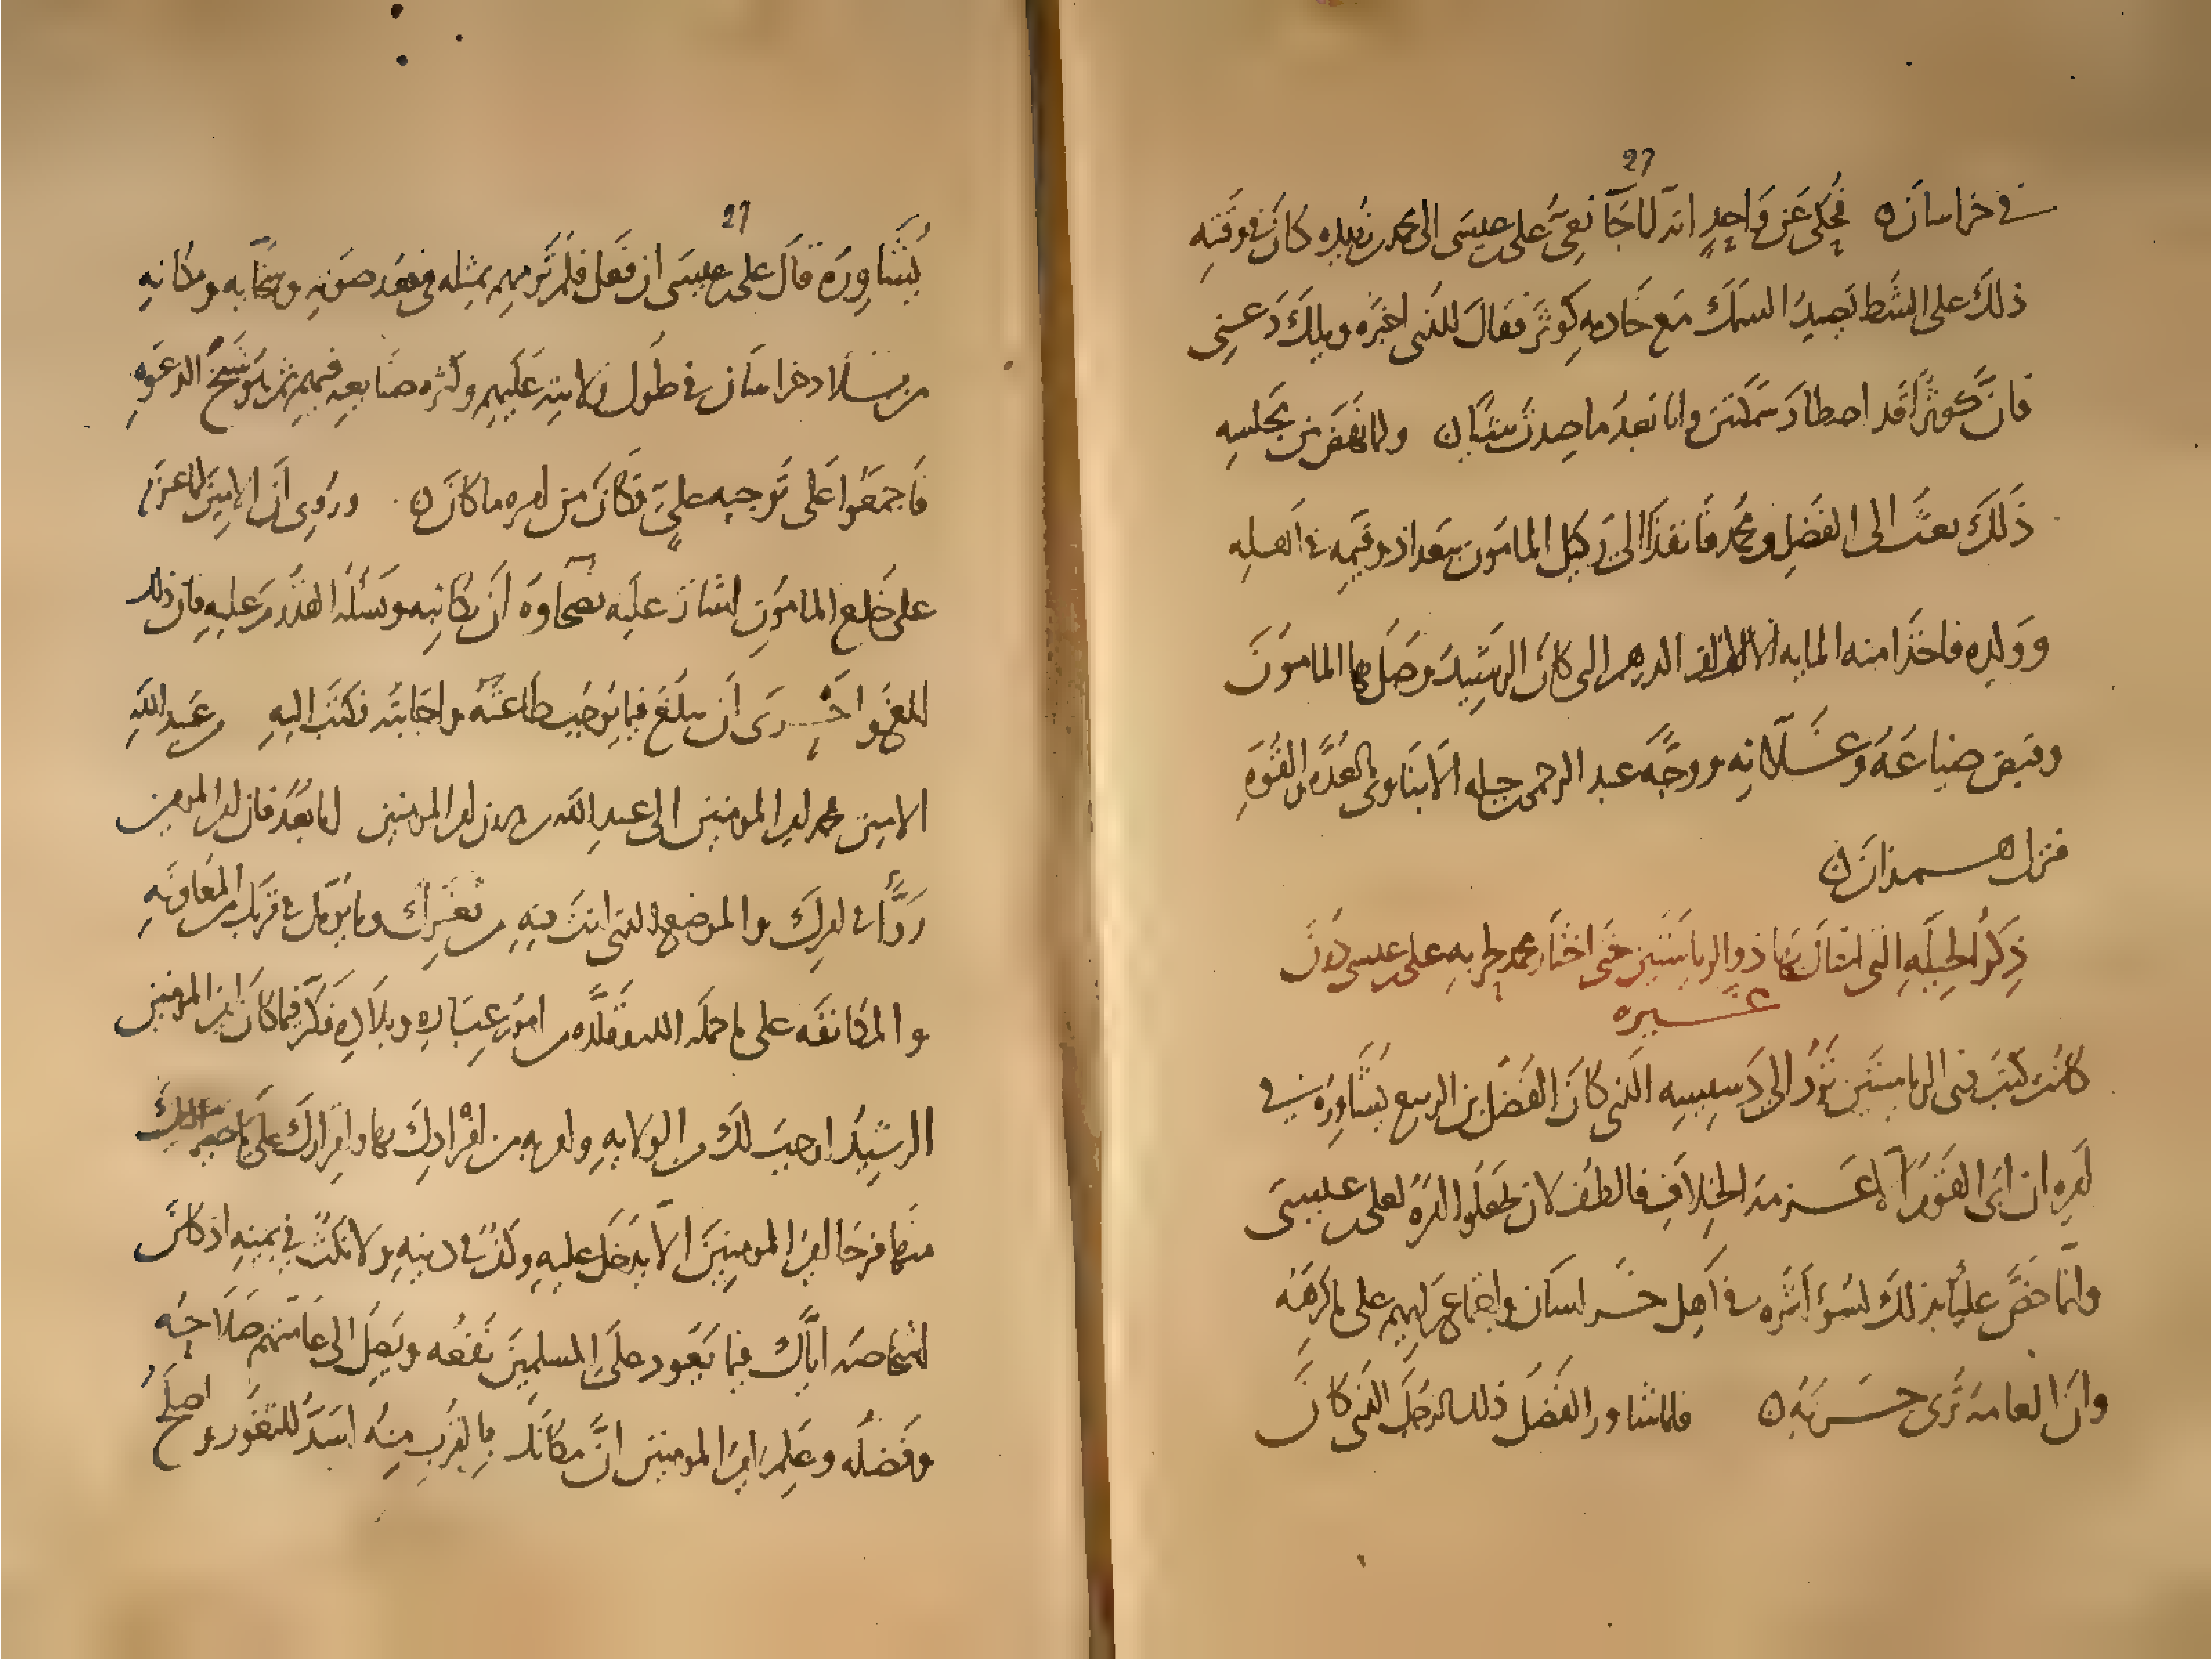 27
في خراسان ٥ فحكى عن واحد انه لما جا نعي على عيسى الى محمد بن زبيده كان في وقته
ذلك على الشط يصيد السمك مع خادمه كوثر فقال للذى اخبره ويلك دعنى
فان كوثرا قد اصطاد سمكتين وانا بعد ما صدت شيئا ٥ ولما نهض من مجلسه
ذلك بعث الى الفضل ومحمد فانفذا الى وكيل المامون ببغداد وقيمه في اهله
وولده فاخذا منه المايه الالف الف الدرهم التي كان الرشيد وصل بها المامون
وقبض ضياعه وغلاته ووجه عبد الرحمن جبله الابناوى بالعده والقوه
فنزل همذان ٥
ذكر الحيله التى احتال بها ذو الرياستين حتى اختار محمد لحربه على عيسى دون
غيره
كانت كتب ذى الرياستين ترد الى دسيسه الذي كان الفضل بن الربيع يشاوره في
امره ان ابى القوم الا عزمه الخلاف فالطف لان يجعلوا امره لعلى عيسى
وانما خص عليا بذلك لسوء اثره في اهل خراسان واجتماع رايهم على ما كرهه
وان العامه ترى حربه ٥ فلما شاور الفضل ذلك الرجل الذي كان
27
يشاوره قال على عيسى ان فعل فلم ترمهم بمثله في بعد صوته وسخايه ومكانه
من بلاد خراسان في طول ولايته عليهم وكثره صنايعه فيهم ثم هو شيخ الدعوه
فاجمعوا على توجيه علي فكان من امره ما كان ٥ وروي ان الامين لما عزم
على خلع المامون اشار عليه نصحاوه ان يكاتبه ويسئله القدوم عليه فان ذلك
ابلغ واحرى ان يبلغ فيما يوجب طاعته واجابته فكتب اليه من عبد الله
الامين محمد امير المومنين الى عبد الله بن هرون امير المومنين اما بعد فان امير المومنين
روا في امرك والموضع الذى انت فيه من ثغرك وما يومل في قربك من المعاونه
والمكانفه على ما حمله الله وقلده من امور عباده وبلاده وفكر فيما كان امير المومنين
الرشيد اوجب لك من الولايه وامر به من افرادك بها وافرادك على ما يصير اليك
منها فرجا امير المومنين الا يدخل عليه وكف في دينه ولا نكث في يمينه اذ كان
اشخاصه اياك فيما يعود على المسلمين نفعه ويصل الى عامتهم صلاحه
وفضله وعلم امير المومنين ان مكانك بالقرب منه اسد للثغور واصلح